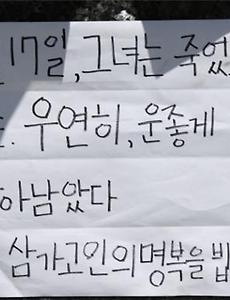 17일, 그녀는 죽었
. 우연히, 운좋게
아남았다
삼가고인의명복을 빕